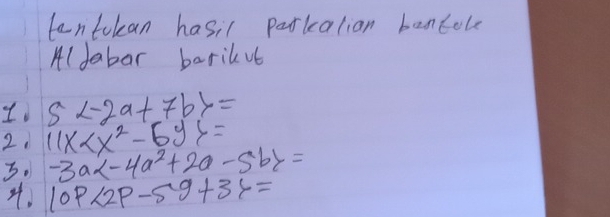 tentukan hasil perkalian bentuk
Aljabar berikut
1. 5 <-2a+7b>=
2. 11x<x²-6y>=
3. -3a<-4a²+2a-5b>=
4. 10P<2P-5q+3>=